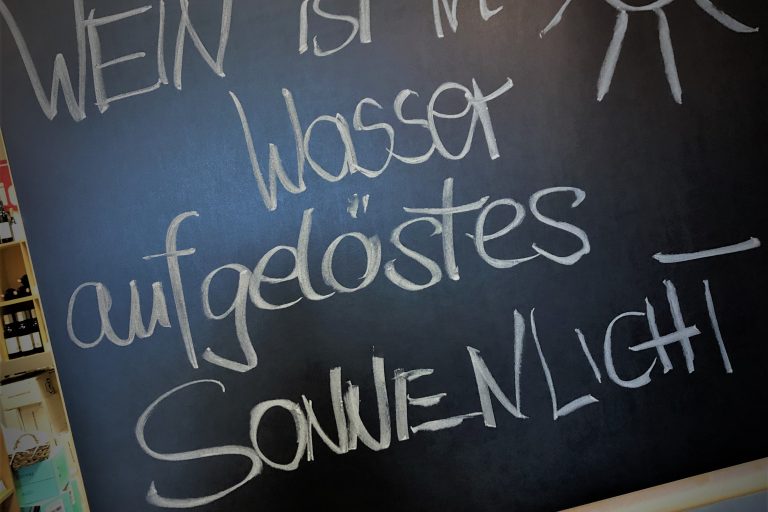 WEIN IST IN
Wasser
aufgelöstes
SONNENLICHT